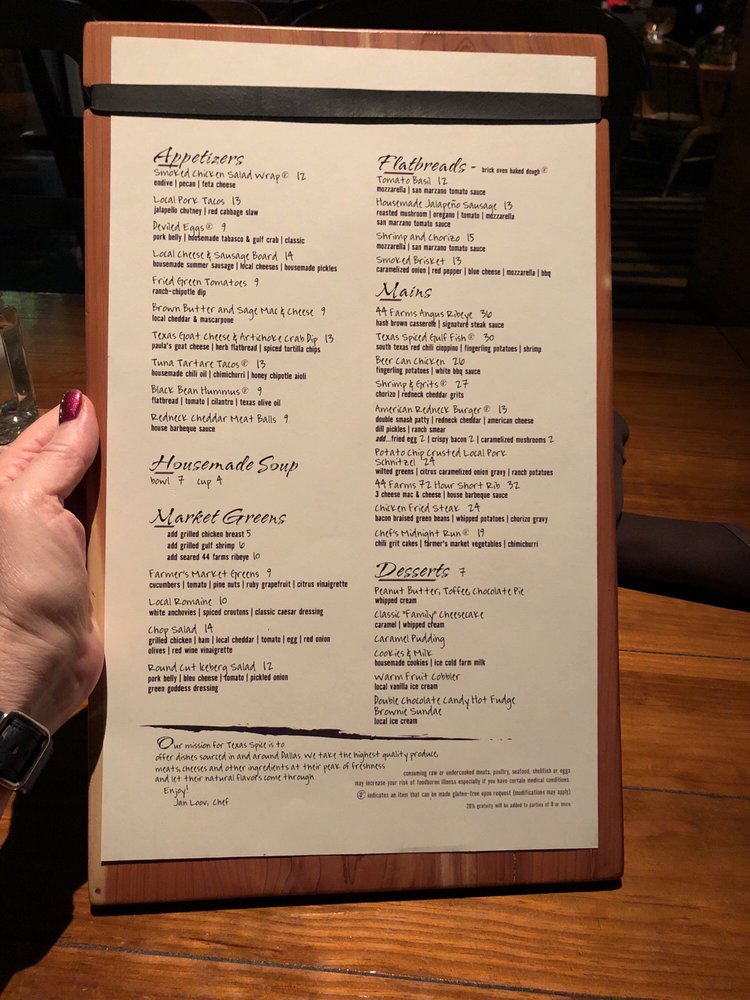 Appetizers
Smoked Chicken Salad Wrap 12
endive | pecan | feta cheese
Local Pork Tacos 13
jalapeño chutney | red cabbage slaw
Deviled Eggs 9
pork belly | housemade tabasco & gulf crab | classic
Local Cheese & Sausage Board 14
housemade summer sausage | local cheeses | housemade pickles
Fried Green Tomatoes 9
ranch-chipotle dip
Brown Butter and Sage Mac & Cheese 9
local cheddar & mascarpone
Texas Goat Cheese & Artichoke Crab Dip 13
paula's goat cheese | herb flatbread | spiced tortilla chips
Tuna Tartare Tacos 13
housemade chili oil | chimichurri | honey chipotle aioli
Black Bean Hummus 9
flatbread | tomato | cilantro | texas olive oil
Redneck Cheddar Meat Balls 9
house barbeque sauce
Housemade Soup
bowl 7 cup 4
Market Greens
add grilled chicken breast 5
add grilled gulf shrimp 6
add seared 44 farms ribeye 10
Farmer's Market Greens 9
cucumbers | tomato | pine nuts | ruby grapefruit | citrus vinaigrette
Local Romaine 10
white anchovies | spiced croutons | classic caesar dressing
Chop Salad 14
grilled chicken | ham | local cheddar | tomato | egg | red onion
olives | red wine vinaigrette
Round Cut Iceberg Salad 12
pork belly | bleu cheese | tomato | pickled onion
green goddess dressing
Flatbreads - brick oven baked dough
Tomato Basil 12
mozzarella | san marzano tomato sauce
Housemade Jalapeño Sausage 13
roasted mushroom | oregano | tomato | mozzarella
san marzano tomato sauce
Shrimp and Chorizo 15
mozzarella | san marzano tomato sauce
Smoked Brisket 13
caramelized onion | red pepper | blue cheese | mozzarella | bbq
Mains
44 Farms Angus Ribeye 36
hash brown casserole | signature steak sauce
Texas Spiced Gulf Fish 30
south texas red chili cioppino | fingerling potatoes | shrimp
Beer Can Chicken 26
fingerling potatoes | white bbq sauce
Shrimp & Grits 27
chorizo | redneck cheddar grits
American Redneck Burger 13
double smash patty | redneck cheddar | american cheese
dill pickles | ranch smear
add...fried egg 2 | crispy bacon 2 | caramelized mushrooms 2
Potato Chip Crusted Local Pork
Schnitzel 24
wilted greens | citrus caramelized onion gravy | ranch potatoes
44 Farms 72 Hour Short Rib 32
3 cheese mac & cheese | house barbeque sauce
Chicken Fried Steak 24
bacon braised green beans | whipped potatoes | chorizo gravy
Chef's Midnight Run 19
chili grit cakes | farmer's market vegetables | chimichurri
Desserts 7
Peanut Butter, Toffee, Chocolate Pie
whipped cream
Classic "Family" Cheesecake
caramel | whipped cream
Caramel Pudding
Cookies & Milk
housemade cookies | ice cold farm milk
Warm Fruit Cobbler
local vanilla ice cream
Double Chocolate Candy Hot Fudge
Brownie Sundae
local ice cream
Our mission for Texas Spice is to
offer dishes sourced in and around Dallas. We take the highest quality produce,
meats, cheeses and other ingredients at their peak of freshness
and let their natural flavors come through.
Enjoy!
Jan Loov, Chef
consuming raw or undercooked meats, poultry, seafood, shellfish or eggs
may increase your risk of foodborne illness especially if you have certain medical conditions.
indicates an item that can be made gluten-free upon request (modifications may apply)
20% gratuity will be added to parties of 8 or more